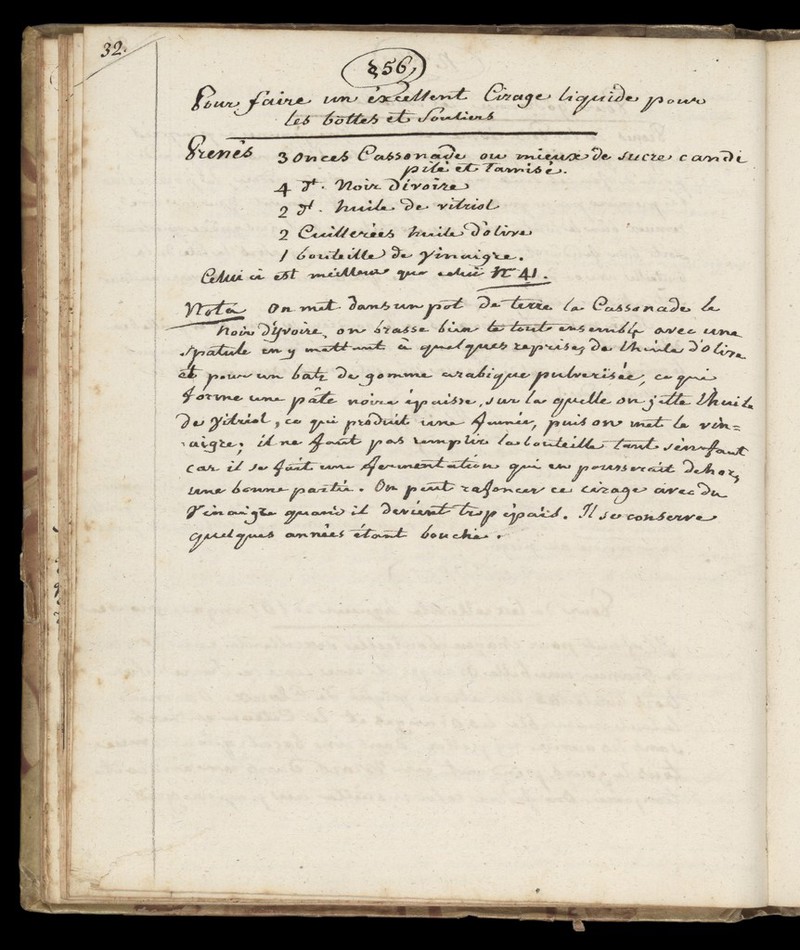 32.
256,
Pour faire un éxcellent Cirage liquide pour
les bottes et Souliers
Prenés 3 onces Cassonade ou mieux de sucre candi
pilé et Tamisé.
4 dt. Noir d'ivoire
2 dt. huile de vitriol
2 Cuillerées huile d'olive
1 bouteille de vinaigre.
Celui ci est meilleur que celui N° 41.
Nota On met dans un pot de terre la Cassonade le
Noir d'yvoire, on brasse bien le tout ensemble avec une
spatule en y mettant à quelques reprises de l'huile d'olive
et pour un batz de gomme arabique pulverisée, ce qui
forme une pâte noire épaisse, sur la quelle on jette l'huile
de vitriol, ce qui produit une fumée, puis on met le vin=
aigre; il ne faut pas remplir la bouteille tant s'en faut
car il se fait une fermentation qui en pousserait dehors
une bonne partie. On peut rafoncer ce cirage avec du
Vinaigre quand il devient trop épais. Il se conserve
quelques années étant bouché.